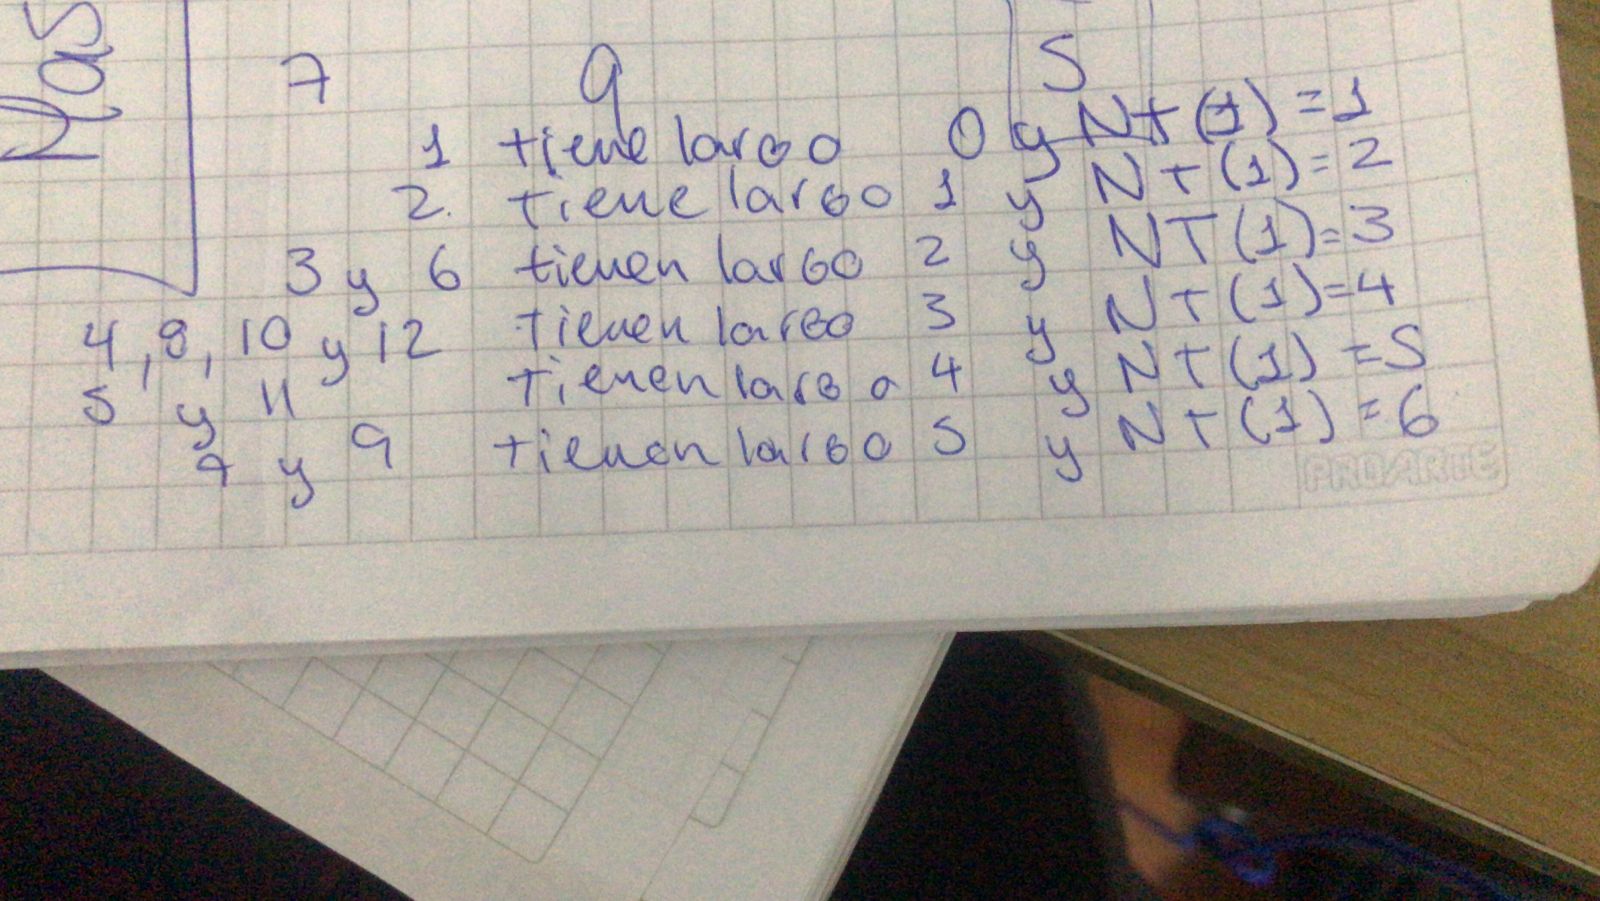 Mas
7 9 5
1 tiene largo 0 y NT(1)=1
2. tiene largo 1 y NT(1)=2
3 y 6 tienen largo 2 y NT(1)=3
4,8,10 y 12 tienen largo 3 y NT(1)=4
5 y 11 tienen largo 4 y NT(1)=5
7 y 9 tienen largo 5 y NT(1)=6
PROARTE